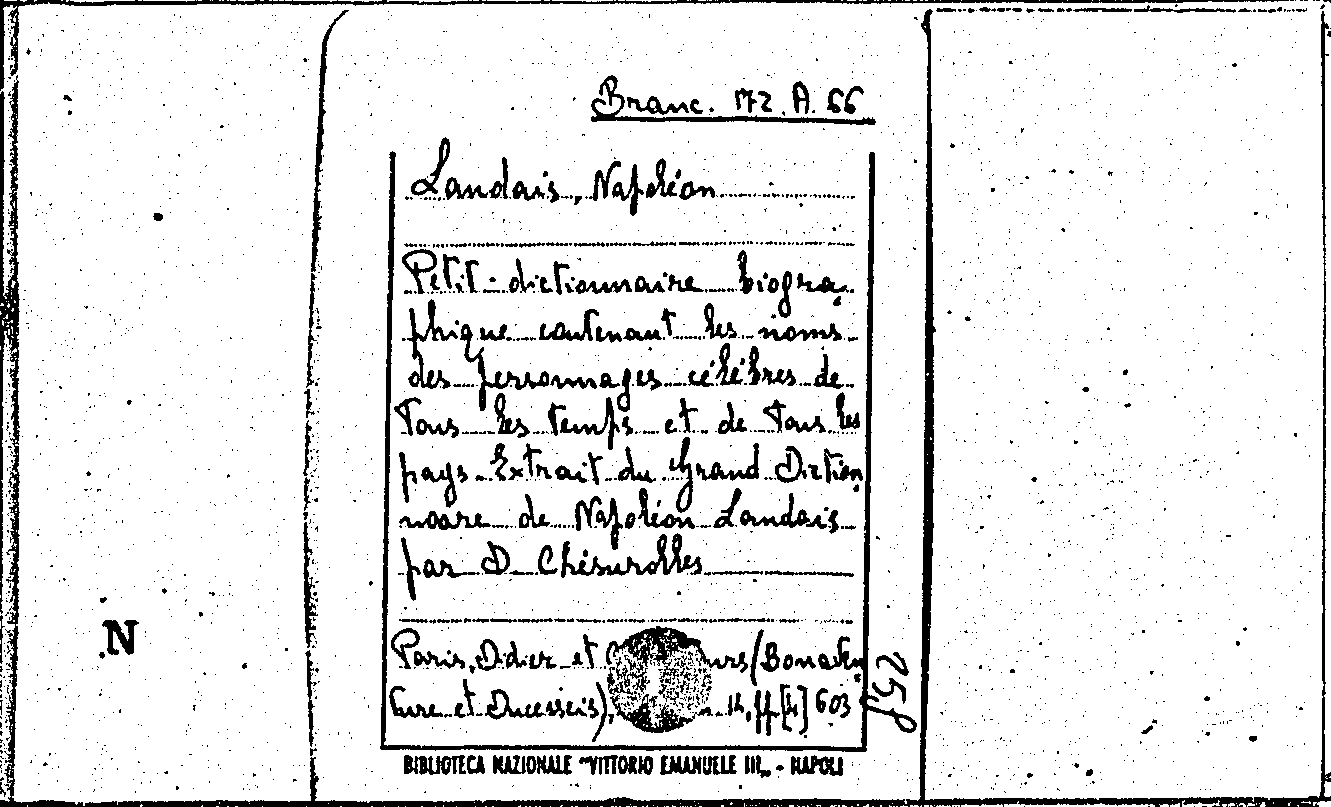 Branc. 172. A. 66
Landais, Napoléon
Petit-dictionnaire biogra-
phique contenant les noms
des personnages célébres de
tous les temps et de tous les
pays. Extrait du Grand Diction
noare de Napoléon Landais
par D. Chésurolles
Paris, Didier et urs (Bonaven
ture et Ducessois), 14, pp [4] 603
25J
N
BIBLIOTECA NAZIONALE "VITTORIO EMANUELE III„ - NAPOLI